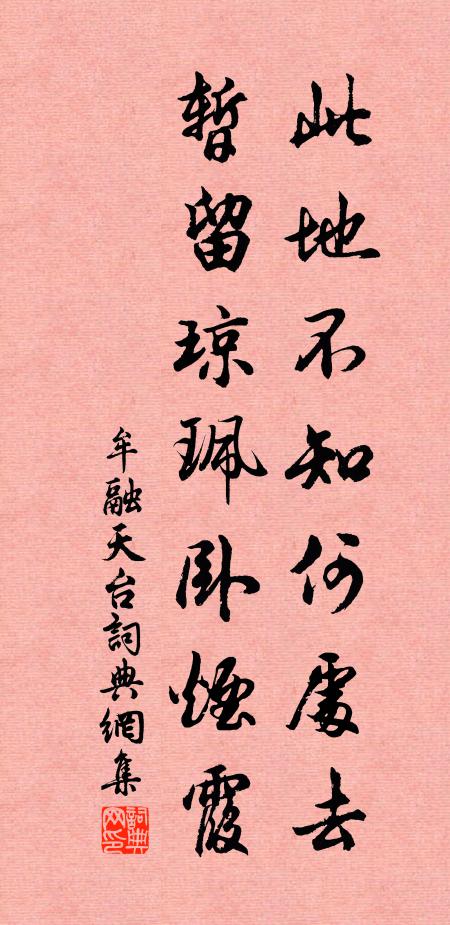 此地不知何處去
暫留琼珮卧煙霞
牟融天台詞典網集
詞典网印